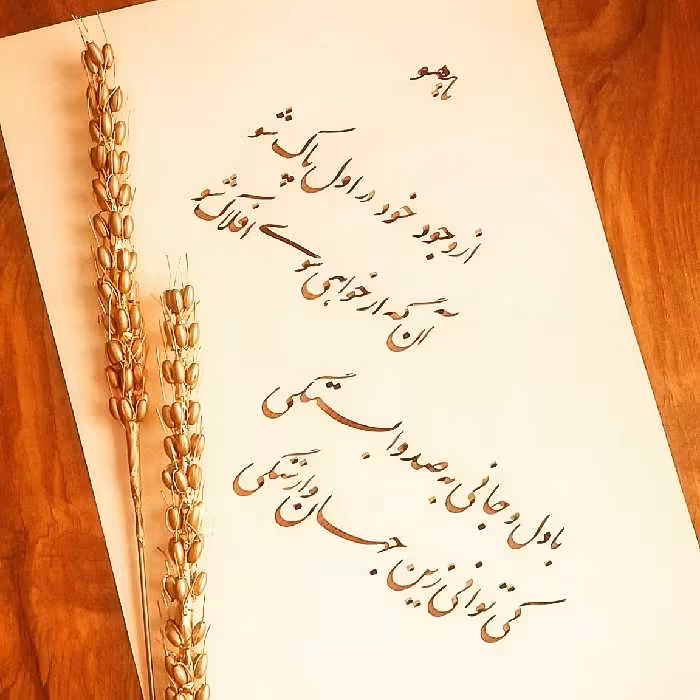 یاهو
از وجود خود در اول پاک شو
آن گه ار خواهی سوی افلاک شو
با دل و جانی به صد وابستگی
کی توانی زین جهان وارستگی